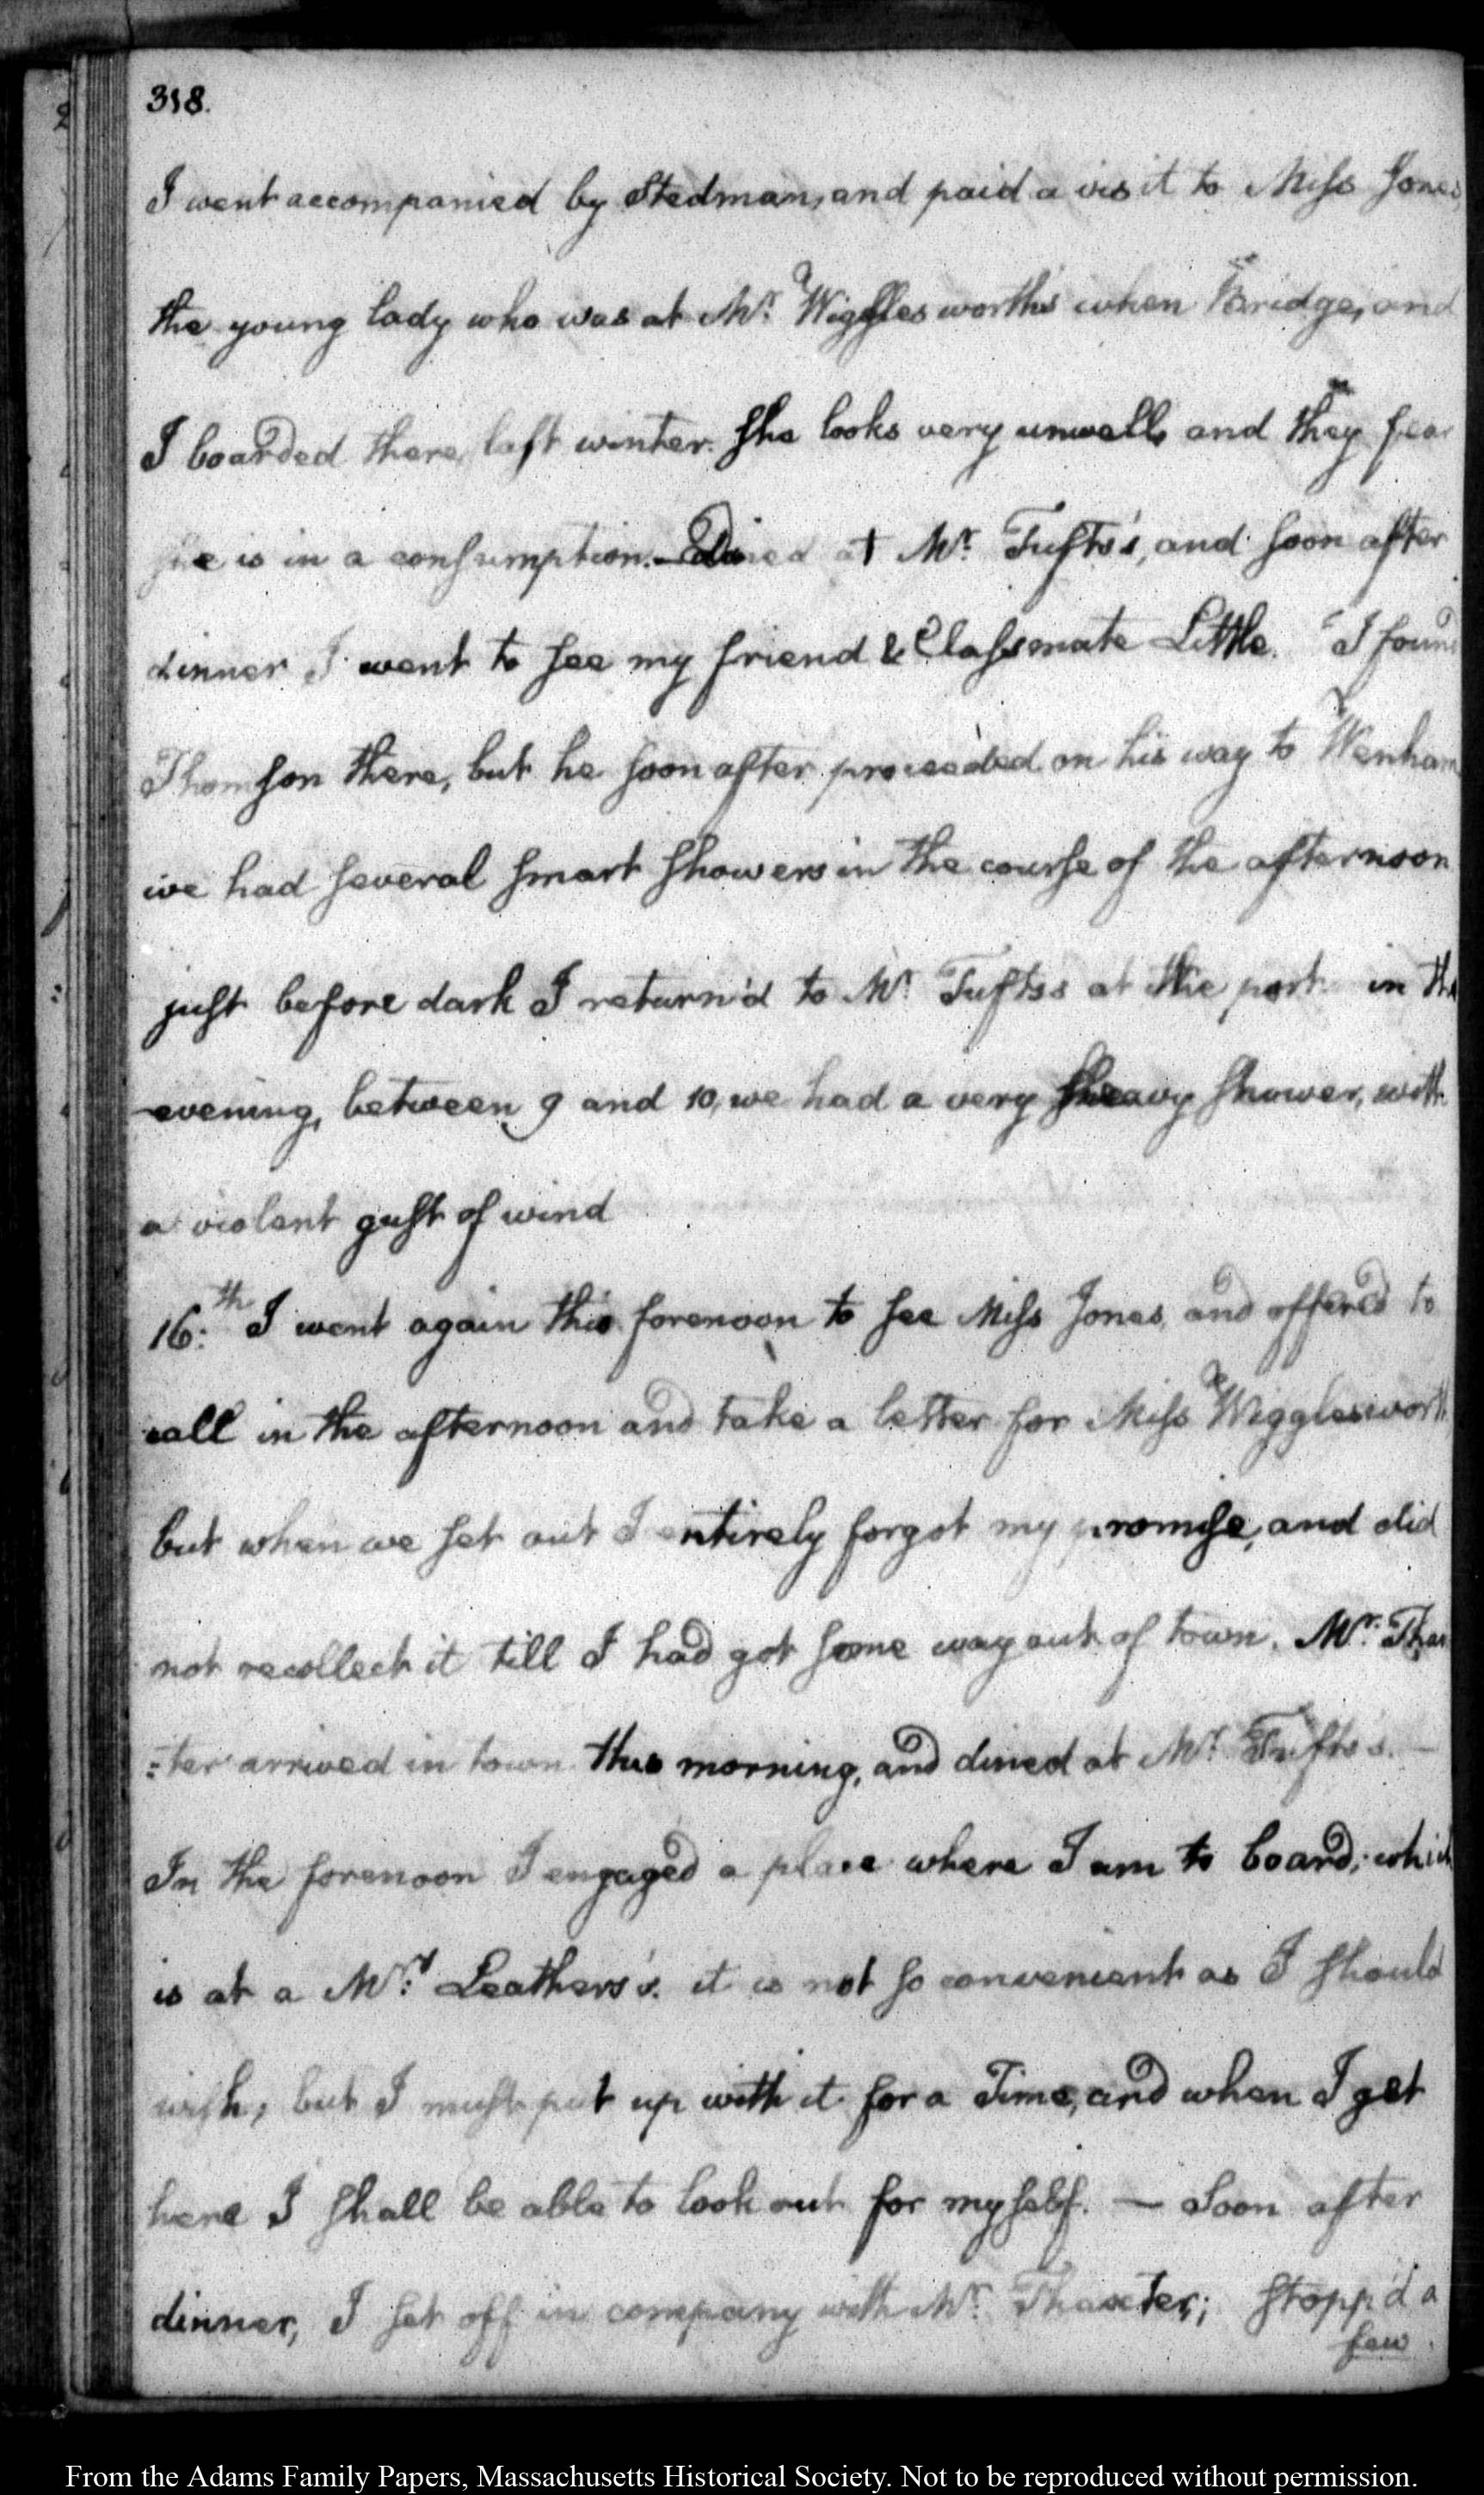 318.
I went accompanied by Stedman, and paid a visit to Miss Jones,
the young lady who was at Mr. Wigglesworth's when Bridge, and
I boarded there, last winter. She looks very unwell, and they fear
she is in a consumption. — Dined at Mr. Tufts's, and soon after
dinner I went to see my friend & Classmate Little. I found
Thomson there, but he soon after proceeded on his way to Wenham
we had several smart showers in the course of the afternoon
just before dark I return'd to Mr. Tufts's at the port. in the
evening, between 9 and 10, we had a very heavy shower, with
a violent gust of wind
16.th I went again this forenoon to see Miss Jones, and offered to
call in the afternoon and take a letter for Miss Wigglesworth
but when we set out I entirely forgot my promise, and did
not recollect it till I had got some way out of town. Mr. Thax
:ter arrived in town this morning, and dined at Mr. Tufts's. —
In the forenoon I engaged a place where I am to board; which
is at a Mrs. Leathers's. it is not so convenient as I should
wish, but I must put up with it for a Time, and when I get
here I shall be able to look out for myself. — Soon after
dinner, I set off in company with Mr. Thaxter; stopp'd a
few
From the Adams Family Papers, Massachusetts Historical Society. Not to be reproduced without permission.